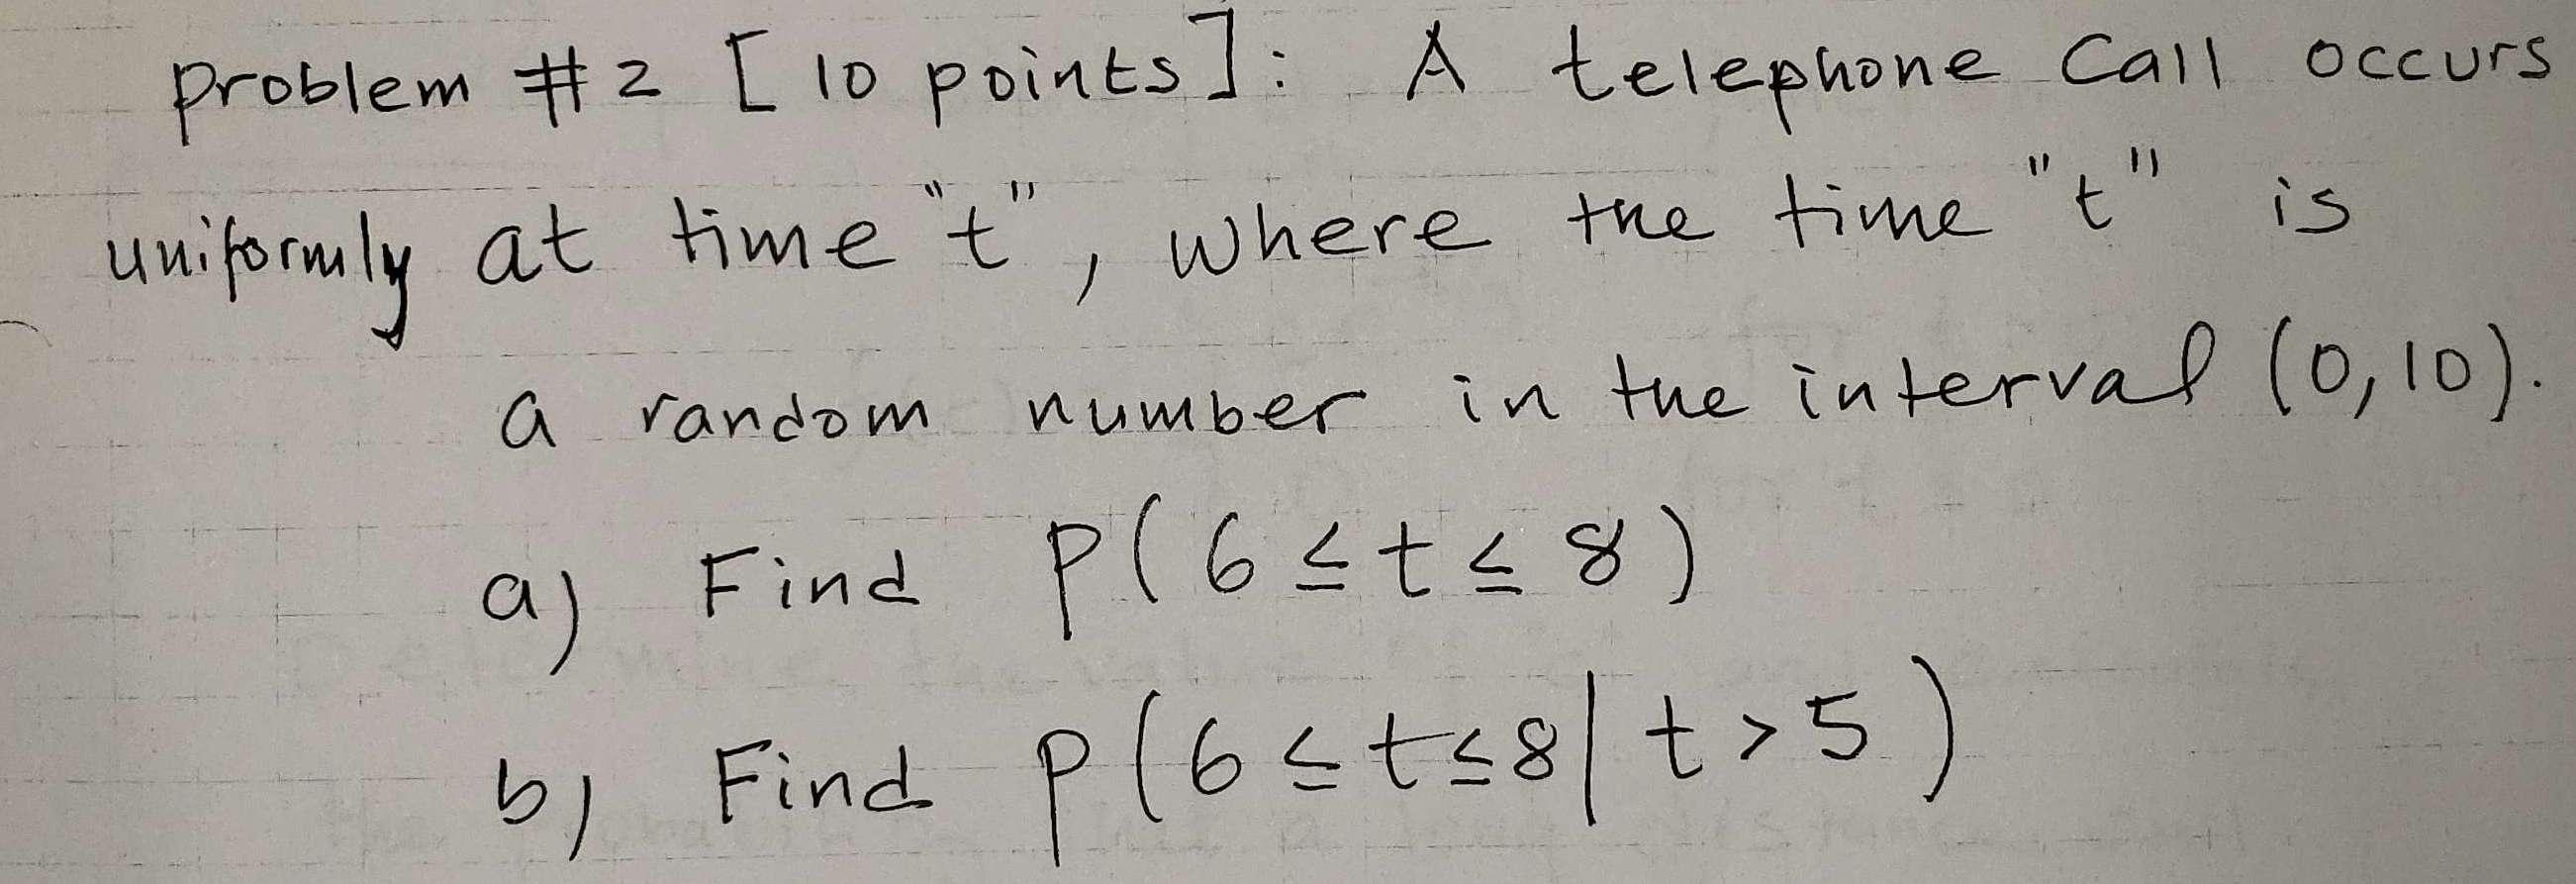 problem #2 [10 points]: A telephone call occurs
uniformly at time "t", where the time "t" is
a random number in the interval (0,10).
a) Find P(6 ≤ t ≤ 8)
b) Find P(6 ≤ t ≤ 8 | t > 5)